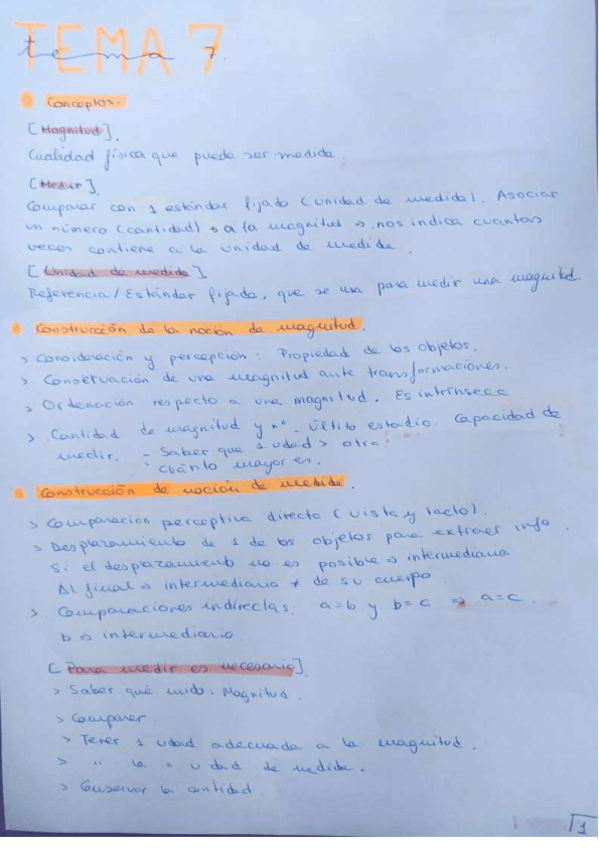 TEMA 7
tema 7.
Conceptos.
[Magnitud].
Cualidad física que puede ser medida.
[Medir].
Comparar con 1 estándar fijado (unidad de medida). Asociar
un número (cantidad) → a la magnitud → nos indica cuantas
veces contiene a la unidad de medida.
[Unidad de medida].
Referencia / Estándar fijada, que se usa para medir una magnitud.
Construcción de la noción de magnitud.
> Consideración y percepción: Propiedad de los objetos.
> Conservación de una magnitud ante transformaciones.
> Ordenación respecto a una magnitud. Es intrínseca
> Cantidad de magnitud y nº. Último estadio. Capacidad de
medir. - Saber que 1 udad > otra.
- cuánto mayor es.
Construcción de noción de medida.
> Comparación perceptiva directa (vista y tacto).
> Desplazamiento de 1 de los objetos para extraer info.
Si el desplazamiento no es posible → intermediaria
Al final → intermediario ≠ de su cuerpo
> Comparaciones indirectas: a=b y b=c ⇒ a=c.
b → intermediario
[Para medir es necesario].
> Saber qué mido. Magnitud.
> Comparar.
> Tener 1 udad adecuada a la magnitud.
> " la = udad de medida.
> Conservar la cantidad.
1